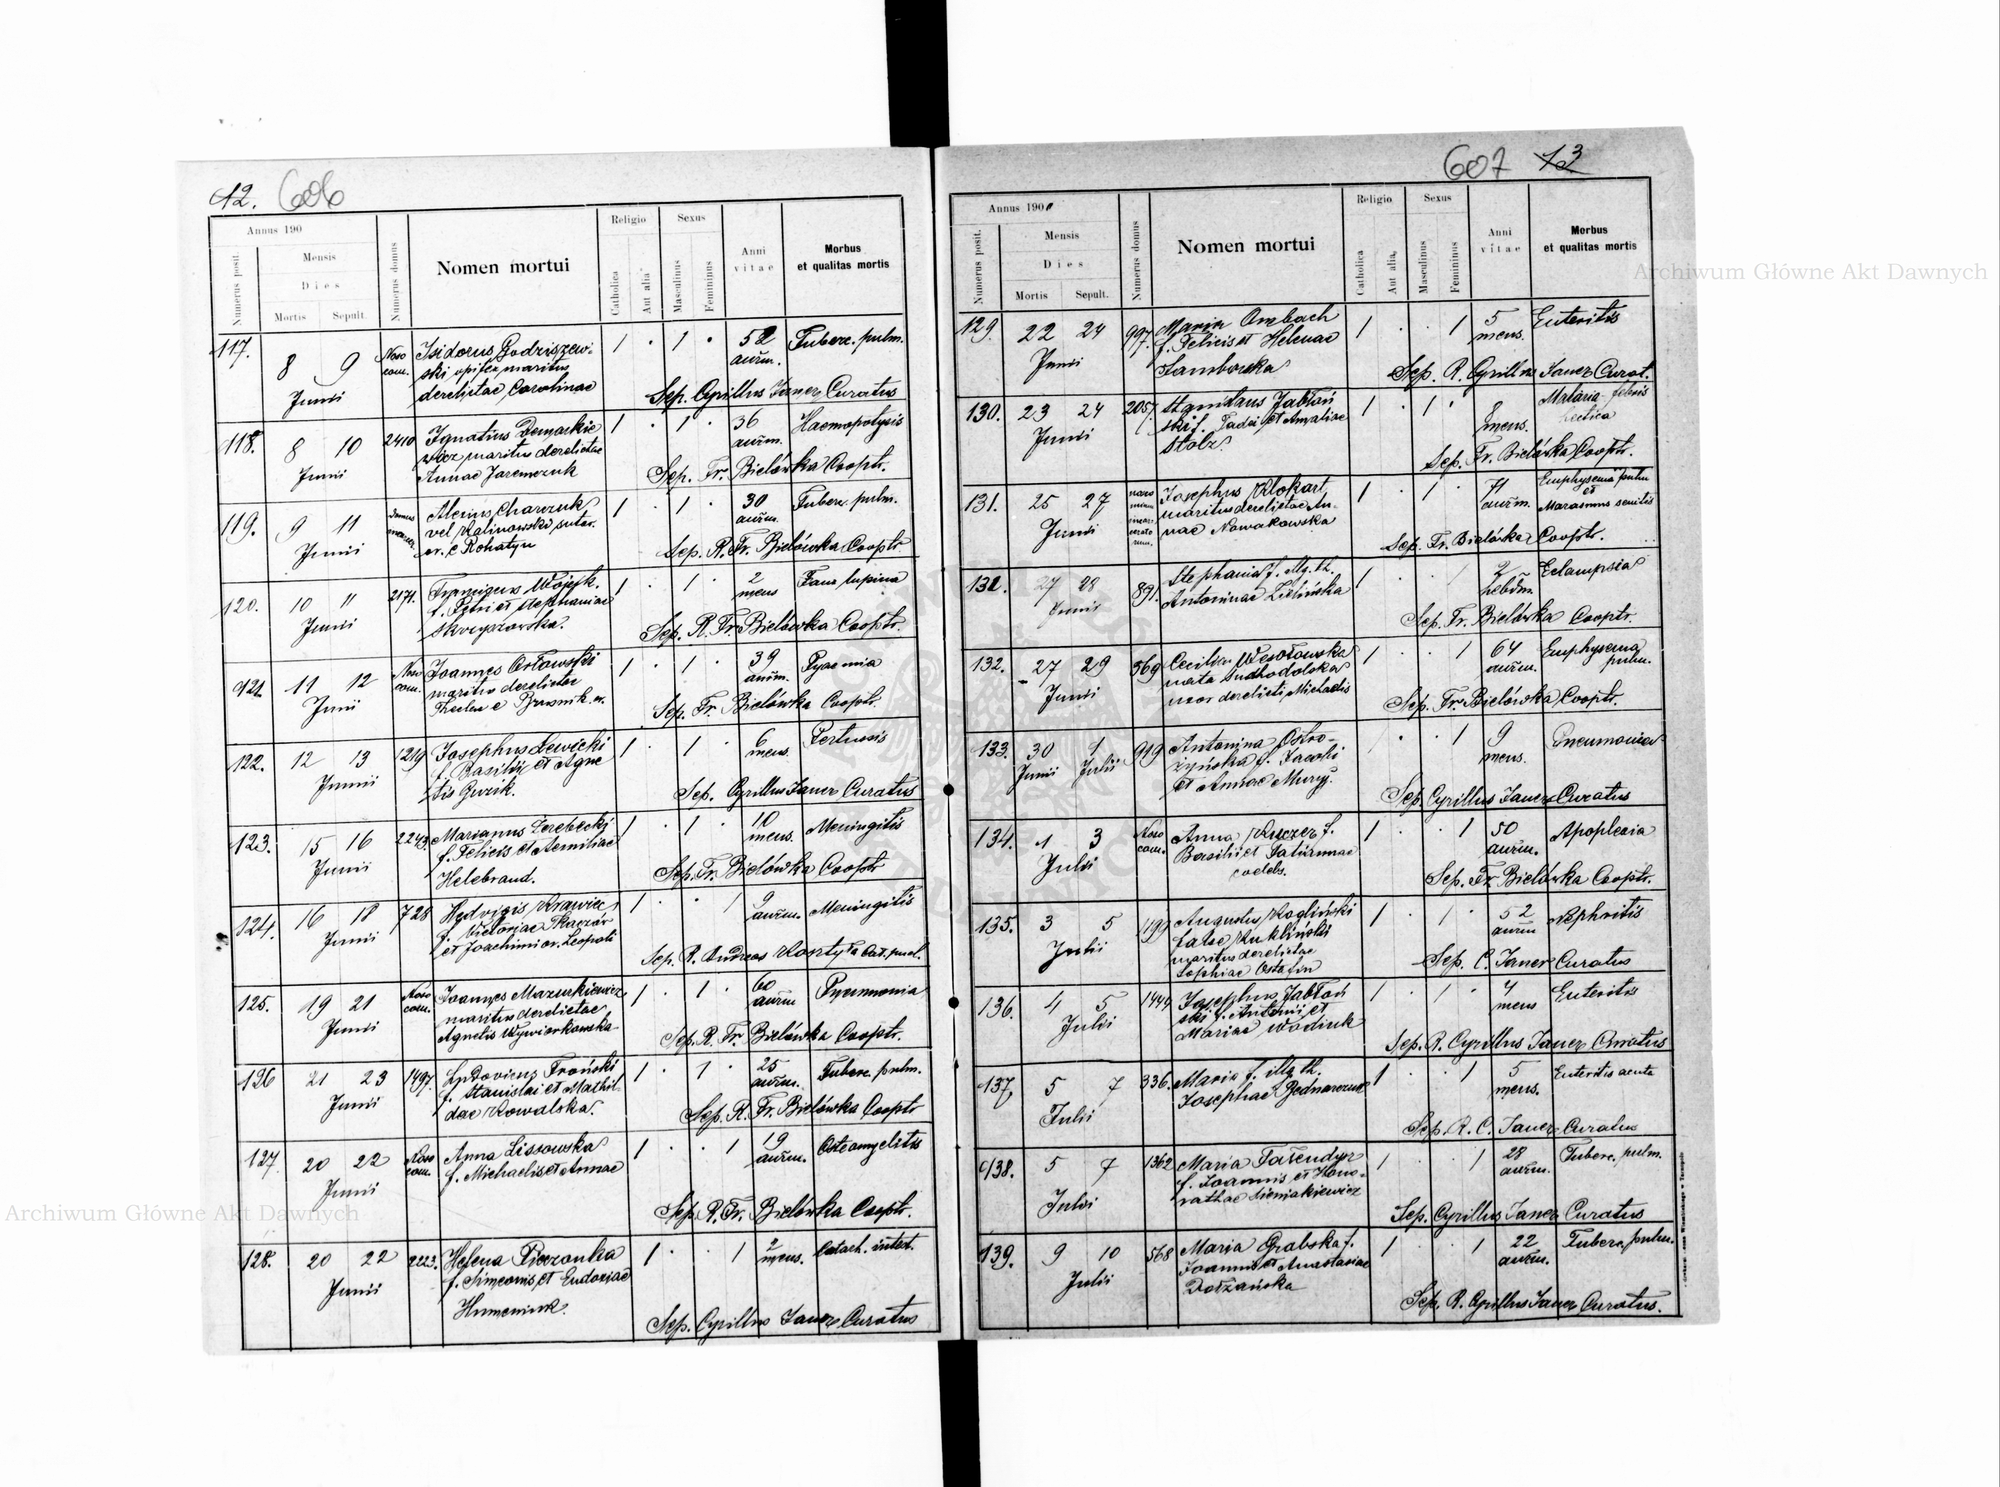 12. 606
Annus 190
Numerus posit.
Mensis
Dies
Mortis Sepult.
Numerus domus
Nomen mortui
Religio
Catholica
Aut alia
Sexus
Masculinus
Femininus
Anni vitae
Morbus
et qualitas mortis
117. 8 9 Junii Noso com. Isidorus Godziszew-
ski opifex maritus
derelictae Carolinae
1 . 1 . 52 annm. Tuberc. pulm.
Sep. Cyrillus Janez Curatus
118. 8 10 Junii 2410 Ignatius Demarkie
wicz maritus derelictae
Annae Jaremczuk
1 . 1 . 36 annm. Haemopotysis
Sep. Fr. Bielówka Cooptr.
119. 9 11 Junii Alexius Charczuk
vel Kalinowski sutor.
or. e Rohatyn
1 . 1 . 30 annm. Tuberc. pulm.
Sep. R. Fr. Bielówka Cooptr.
120. 10 11 Junii 2171. Franciscus Wójcik.
f. Petri et Stephaniae
Skrzyszowska.
1 . 1 . 2 mens Faux lupina
Sep. R. Fr. Bielówka Cooptr.
121. 11 12 Junii Noso com. Joannes Orłowski
maritus derelictae
Theclae e
1 . 1 . 39 annm. Pyaemia
Sep. Fr. Bielówka Cooptr.
122. 12 13 Junii 1219 Josephus Lewicki
f. Basilii et Agne
tis Guzik.
1 . 1 . 6 mens. Pertussis
Sep. Cyrillus Janez Curatus
123. 15 16 Junii 2243 Marianus Zerebecki
f. Felicis et Aemiliae
Helebrand.
1 . 1 . 10 mens. Meningitis
Sep. Fr. Bielówka Cooptr.
124. 16 18 Junii 728 Hedvigis Krawiec
f. Victoriae Tkaczów
et Joachimi or. Leopoli
1 . . 1 9 annm. Meningitis
Sep. R. Andreas Kontyła Cat. puel.
125. 19 21 Junii Noso com. Joannes Mazurkiewicz
maritus derelictae
Agnetis Wywiorkowska
1 . 1 . 60 annm Pneumonia
Sep. R. Fr. Bielówka Cooptr.
126 21 23 Junii 1497. Ludovicus Troński
f. Stanislai et Mathil-
dae Kowalska.
1 . 1 . 25 annm. Tuberc. pulm.
Sep. R. Fr. Bielówka Cooptr
127. 20 22 Junii Noso com. Anna Lissowska
f. Michaelis et Annae
1 . . 1 19 annm. Osteomyelitis
Sep. R. Fr. Bielówka Cooptr.
128. 20 22 Junii 2223. Helena Pieczonka
f. Simeonis et Eudoxiae
Humeniuk.
1 . . 1 2 mens. Catarh. intest.
Sep. Cyrillus Janez Curatus
607 13
Annus 190
Numerus posit.
Mensis
Dies
Mortis Sepult.
Numerus domus
Nomen mortui
Religio
Catholica
Aut alia,
Sexus
Masculinus
Femininus
Anni vitae
Morbus
et qualitas mortis
129. 22 24 Junii 997. Maria Ombach
f. Felicis et Helenae
Samborska
1 . . 1 5 mens. Enteritis
Sep. R. Cyrillus Janez Curat.
130. 23 24 Junii 2057. Stanislaus Jabłoń
ski f. Tadei et Amaliae
Stolz.
1 . 1 . mens. Malaria febris
hectica
Sep. Fr. Bielówka Cooptr.
131. 25 27 Junii Josephus Klokart
maritus derelictae An-
nae Nowakowska
1 . 1 . 71 annm. Emphysema pulm
et
Marasmus senilis
Sep. Fr. Bielówka Cooptr.
131. 27 28 Junii 891. Stephania f. illg. th.
Antoninae Zielińska
1 . . 1 2 hebdm. Eclampsia
Sep. Fr. Bielówka Cooptr.
132. 27 29 Junii 369 Cecilia Wesołowska
nata Suchodolska
uxor derelicti Michaelis
1 . . 1 64 annm. Emphysema
pulm.
Sep. Fr. Bielówka Cooptr.
133. 30 1 Junii Julii 919 Antonina Ostro-
żyńska f. Jacobi
et Annae Muryj.
. . 1 9 mens. Pneumonia
Sep. Cyrillus Janez Curatus
134. 1 3 Julii Noso com. Anna Kuczer f.
Basilii et
coelebs.
1 . . 1 50 annm. Apoplexia
Sep. Fr. Bielówka Cooptr.
135. 3 5 Julii 1199 Augustus Kogliński
false Kukliński
maritus derelictae
Sophiae Ostafin
1 . 1 . 52 annm Nephritis
Sep. C. Janez Curatus
136. 4 5 Julii 1444 Josephus Jabłoń
ski f. Antonii et
Mariae Wodiuk
1 . 1 . mens Enteritis
Sep. R. Cyrillus Janez Curatus
137. 5 7 Julii 336. Maria f. illg. th.
Josephae Bednarczuk
1 . . 1 5 mens. Enteritis acuta
Sep. R. C. Janez Curatus
138. 5 7 Julii 1362 Maria Tarendyz
f. Joannis et Hono-
rathae Sieniakiewicz
1 . . 1 28 annm. Tuberc. pulm.
Sep. Cyrillus Janez Curatus
139. 9 10 Julii 568 Maria Grabska f.
Joannis et Anastasiae
Dołżańska
1 . . 1 22 annm. Tuberc. pulm.
Sep. R. Cyrillus Janez Curatus.
Archiwum Główne Akt Dawnych
Archiwum Główne Akt Dawnych